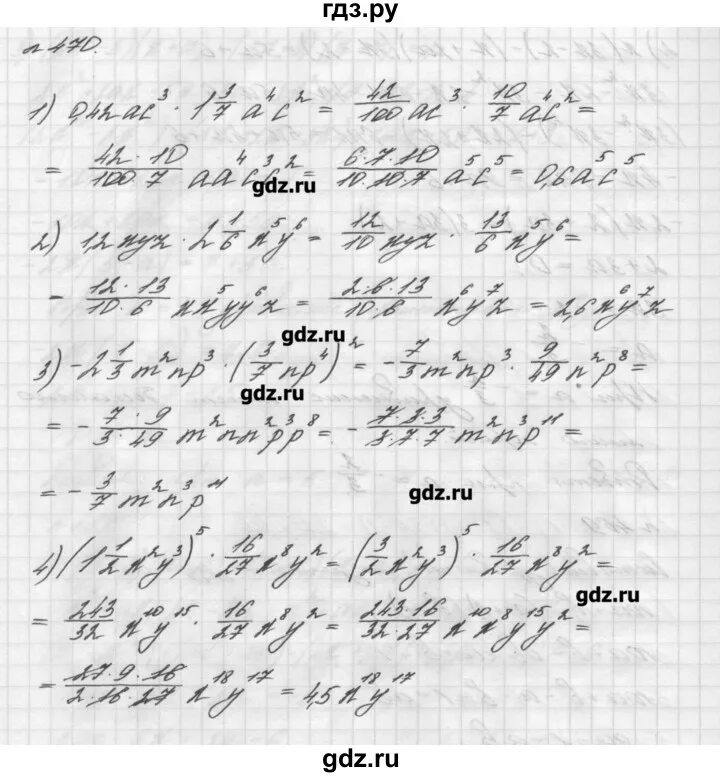 гдз.ру
№ 470.
1) 0,42ac³ · 1 3/7 a⁴c² = 42/100 ac³ · 10/7 a⁴c² =
= 42·10/100·7 aa⁴c³c² = 6·7·10/10·10·7 a⁵c⁵ = 0,6a⁵c⁵
gdz.ru
2) 1,2xyz · 2 1/6 x⁵y⁶ = 12/10 xyz · 13/6 x⁵y⁶ =
= 12·13/10·6 xx⁵yy⁶z = 2·6·13/10·6 x⁶y⁷z = 2,6x⁶y⁷z
gdz.ru
3) -2 1/3 m²np³ · (3/7 np⁴)² = -7/3 m²np³ · 9/49 n²p⁸ =
gdz.ru
= -7·9/3·49 m²nn²p³p⁸ = -7·3·3/3·7·7 m²n³p¹¹ =
= -3/7 m²n³p¹¹
gdz.ru
4) (1 1/2 x²y³)⁵ · 16/27 x⁸y² = (3/2 x²y³)⁵ · 16/27 x⁸y² =
gdz.ru
= 243/32 x¹⁰y¹⁵ · 16/27 x⁸y² = 243·16/32·27 x¹⁰x⁸y¹⁵y² =
= 27·9·16/2·16·27 x¹⁸y¹⁷ = 4,5x¹⁸y¹⁷
gdz.ru
gdz.ru